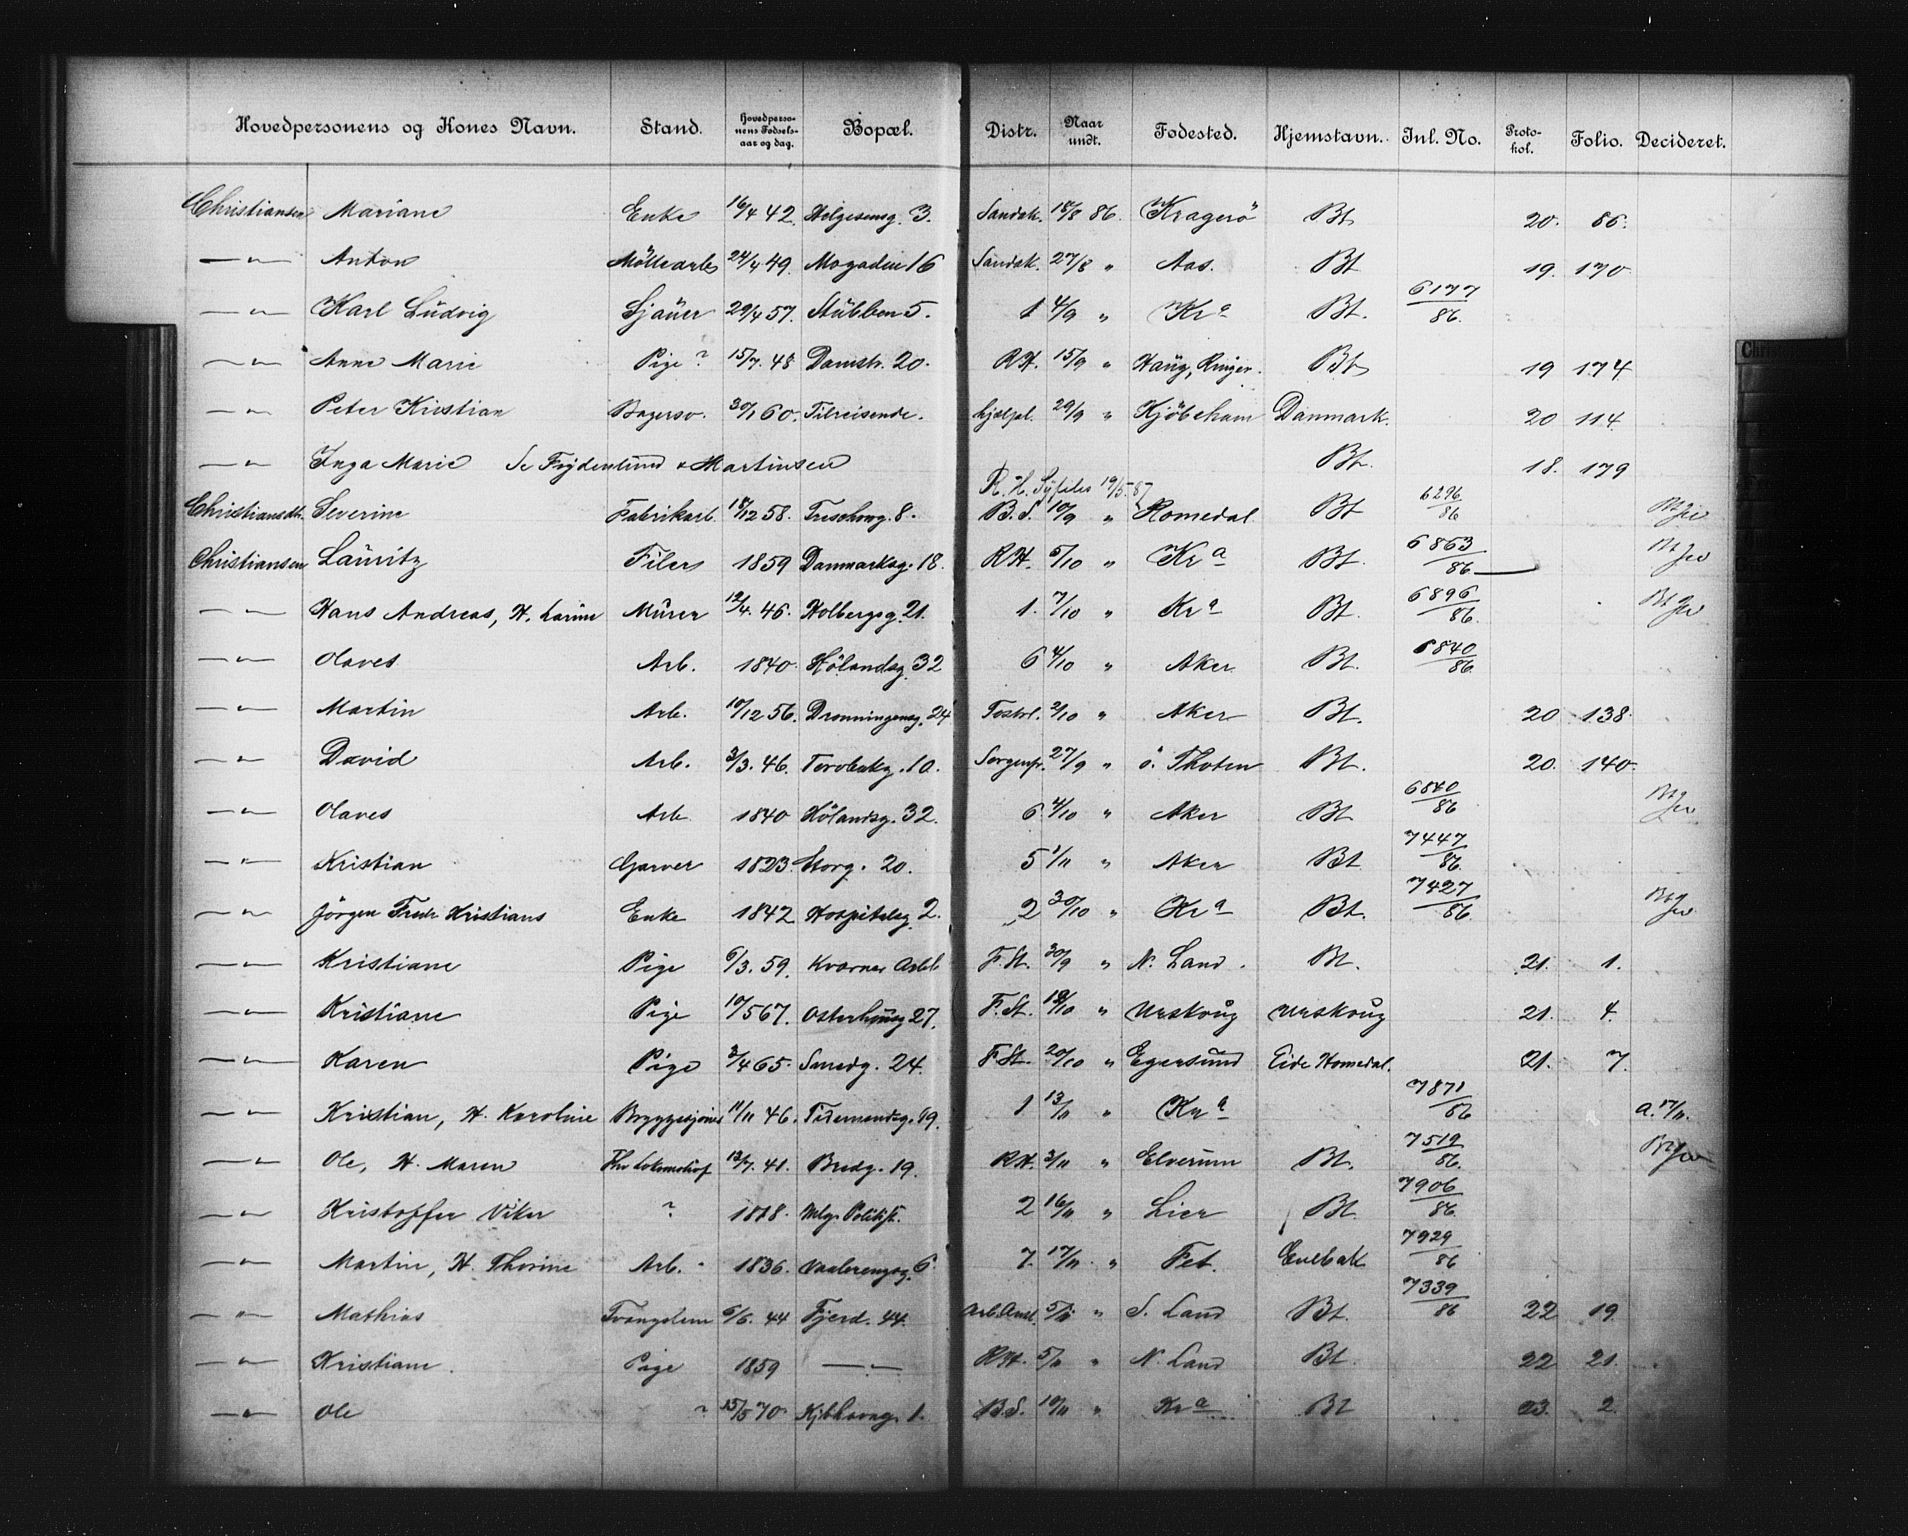 Hovedpersonens og Kones Navn. Stand. Hovedperso-nens Fødsels-aar og dag. Bopæl. Distr. Naar undt. Fødested. Hjemstavn. Inl. No. Proto-kol. Folio. Decideret.
Christiansen Mariane Enke 16/4 42. Helgesensg. 3. Sandak. 18/8 86. Kragerö Bt 20. 86.
—"— Anton Möllearb 24/4 49. Mogaden 16 Sandak. 27/8 " Aas. Bt 19. 170
—"— Karl Ludvig Sjauer 29/4 57. Stubben 5. 1 4/9 " Kra Bt. 6177/86.
—"— Anne Marie Pige ? 15/7. 48 Damstr. 20. RH. 15/9 " Haug, Ringer. Bt 19 174
—"— Peter Kristian Bagersv. 30/1 60. Tilreisende. hjælpl. 29/9 " Kjöbeham Danmark. 20 114
—"— Inga Marie Se Frydenlund & Martinsen Bt. 18. 179
R. H. Syfilis 19/5. 87
Christiansdt. Severine Fabrikarb. 18/12 58. Treschowg. 8. B.S. 10/9 " Romedal Bt 6296/86
Christiansen Lauritz Filer 1859 Danmarksg. 18. RH. 5/10 " Kra Bt. 6863/86
—"— Hans Andreas, H. Larine Murer 12/4. 46. Holbergsg. 21. 1. 7/10 " Kra Bt. 6896/86.
—"— Olaves Arb. 1840 Hölandsg. 32 6 4/10 " Aker Bt. 6840/86.
—"— Martin Arb. 10/12 56. Dronningensg. 24 Tostrl. 2/10 " Aker Bt. 20 138
—"— David Arb. 3/3. 46. Torvbakg. 10. Sorgenfr. 27/9 " ö. Thoten Bt. 20. 140.
—"— Olaves Arb 1840 Hölandsg. 32. 6 4/10 " Aker Bt. 6840/86
—"— Kristian Garver 1823 Storg. 20. 5 1/11 " Aker Bt 7447/86.
—"— Jörgen Fredr Kristians Enke 1842 Hospitalsg. 2. 2 30/10 " Kra Bt. 7427/86.
—"— Kristiane Pige 6/3. 59. Kværner F.St. 30/9 " N. Land. Bt. 21. 1.
—"— Kristiane Pige 10/5 67. Osterhausg 27. F.St. 18/10 " Urskoug Urskoug 21. 4.
—"— Karen Pige 3/4 65. Smedg. 24. F.St. 20/10 " Egersund Eide Homedal. 21. 7.
—"— Kristian, H. Karoline Bryggesjouer 11/11 46. Tidemandsg. 19. 1 13/11 " Kra 7871/86 a. 17/11.
—"— Ole, H. Maren Fhv Lokomotivf 13/7. 41. Bredg. 19. RH. 3/11 " Elverum Bt. 7519/86.
—"— Kristoffer Viker ? 1818. Mlg. Politist. 2 16/11 " Lier Bt. 7906/86.
—"— Martin, H. Thorine Arb. 1836. Vaalerengsg. 6 7. 17/11 " Fet. Enebak 7929/86
—"— Mathias Tvangslem 6/6. 44 Fjerd. 44. Arb.Anst. 5/11 " S. Land Bt. 7339/86 22 19.
—"— Kristiane. Pige 1859 —"— RH. 5/11 " N. Land Bt. 22 21.
—"— Ole ? 15/5 70 Kjbhavng. 1. B.S. 10/11 " Kra Bt 23. 2.